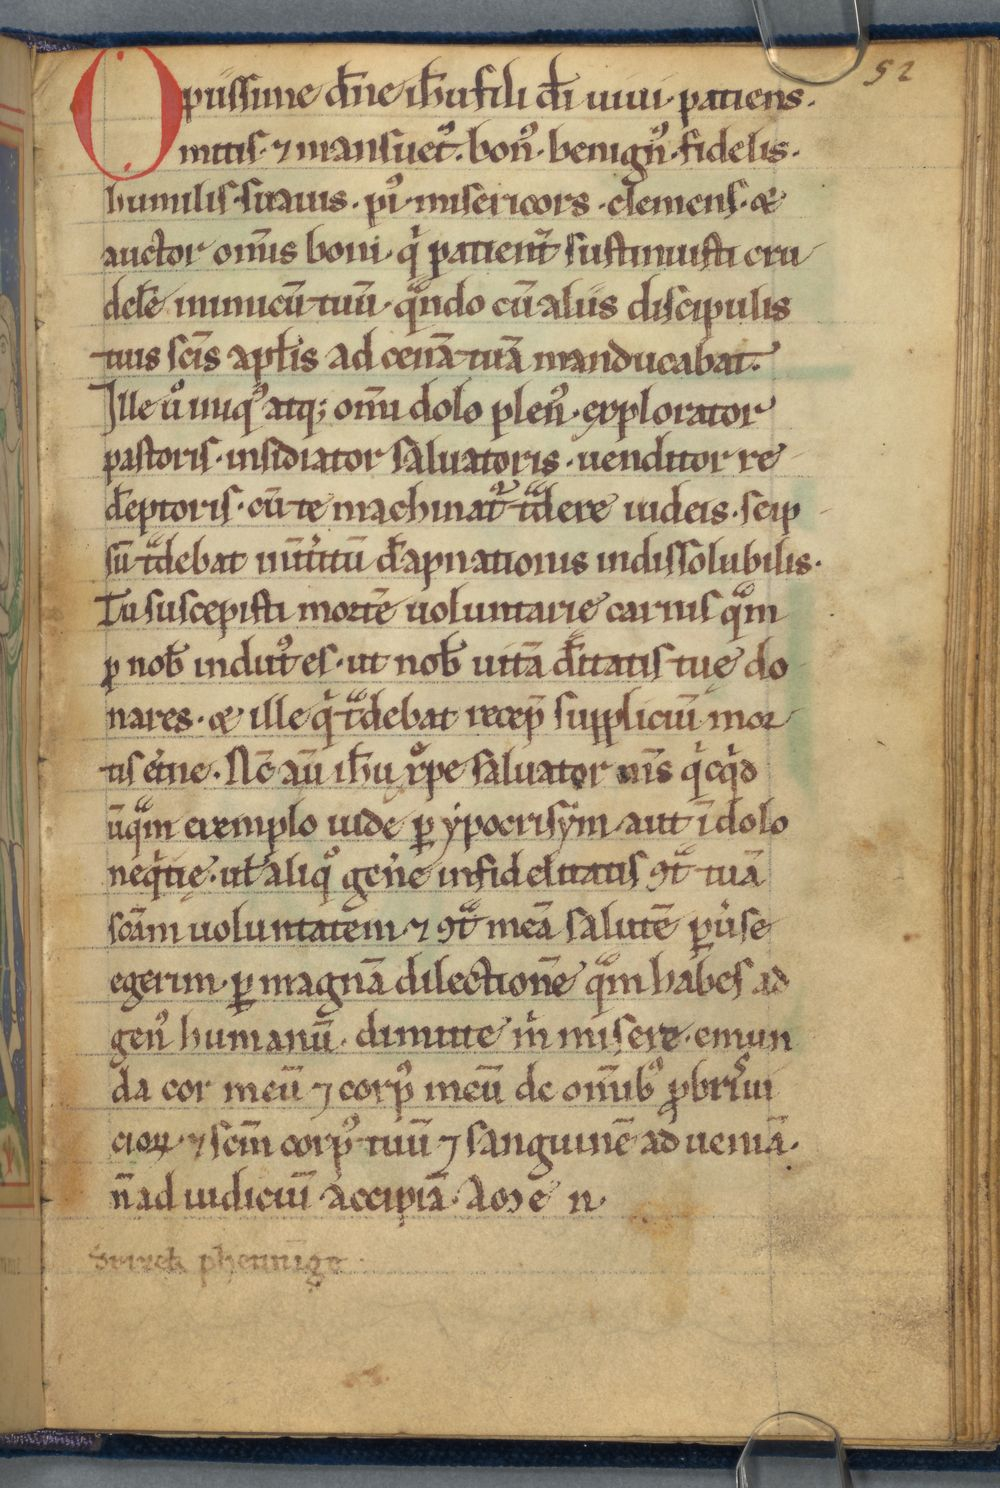 52
O piissime dñe ihu fili dī uiui patiens.
mitis ⁊ mansuet᷒. bon᷒. benign᷒. fidelis.
humilis. suauis. pi᷒. misericors. clemens. &
auctor om̄is boni. qͥ patient̄ sustinuisti cru
delē inimicū tuū. qᷓndo cū aliis discipulis
tuis scīs aplīs ad cenā tuā manducabat.
Ille uͦ iniq᷒ atq; om̄i dolo plen᷒. explorator
pastoris. insidiator saluatoris. uenditor re
dēptoris. cū te machinat᷑ tᷓdere iudeis. seip
sū tᷓdebat int̄itū dāpnationis indissolubilis.
Tu suscepisti mortē uoluntarie carnis qᷓm
ꝓ nob̄ indut᷒ es. ut nob̄ uitā d̄itatis tuę do
nares. & ille qͥ tᷓdebat recep̄ suppliciū mor
tis et̄ne. Nc̄ aū ihu xp̄e saluator nr̄s qͥcqͥd
ūqᷓm exemplo iude ꝑ ypocrisym aut ī dolo
neqͥtię. ut̄ aliqͦ gen̄e infidelitatis ꝯtᷓ tuā
scām uoluntatem ⁊ ꝯtᷓ meā salutē ꝑuise
egerim. ꝑ magnā dilectionē qᷓm habes ad
gen᷒ humanū. dimitte mͥ misere. emun
da cor meū ⁊ corp᷒ meū de om̄ib᷒ ꝓbris ui
cioꝝ. ⁊ scm̄ corp᷒ tuū ⁊ sanguinē ad ueniā.
n̄ ad iudiciū accipiā. Amen.
phennige